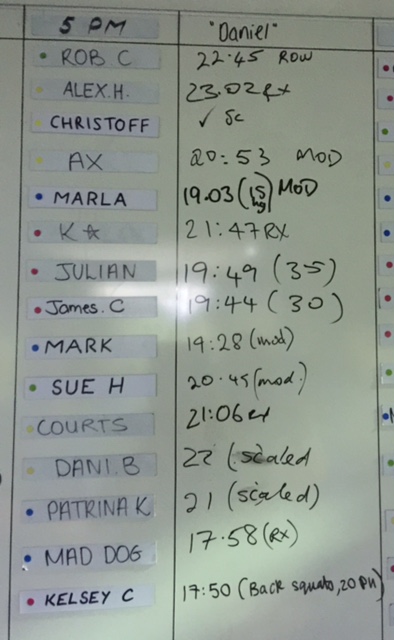 5 PM "Daniel"
ROB C 22.45 ROW
ALEX.H. 23.02 Rx
CHRISTOFF ✓ Sc
AX 20:53 MOD
MARLA 19.03 (15 kg) MOD
K☆ 21:47 RX
JULIAN 19:49 (35)
James.C 19:44 (30)
MARK 19:28 (mod)
SUE H 20.45 (mod.)
COURTS 21:06 rx
DANI.B 22 (scaled
PATRINA K 21 (scaled)
MAD DOG 17.58 (RX)
KELSEY C 17:50 (Back squats, 20 PU)